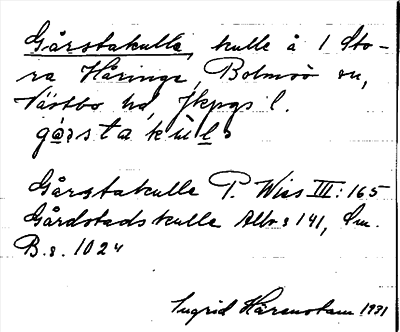 Gårstakulle, kulle å 1 Sto-
ra Häringe, Bolmsö sn,
Västbo hd, Jkpgs l.
gårstakul
Gårstakulle P. Wies III: 165
Gårdstadskulle Allvs 141, Sm.
B.s. 1024
Ingrid Hårenstam 1931